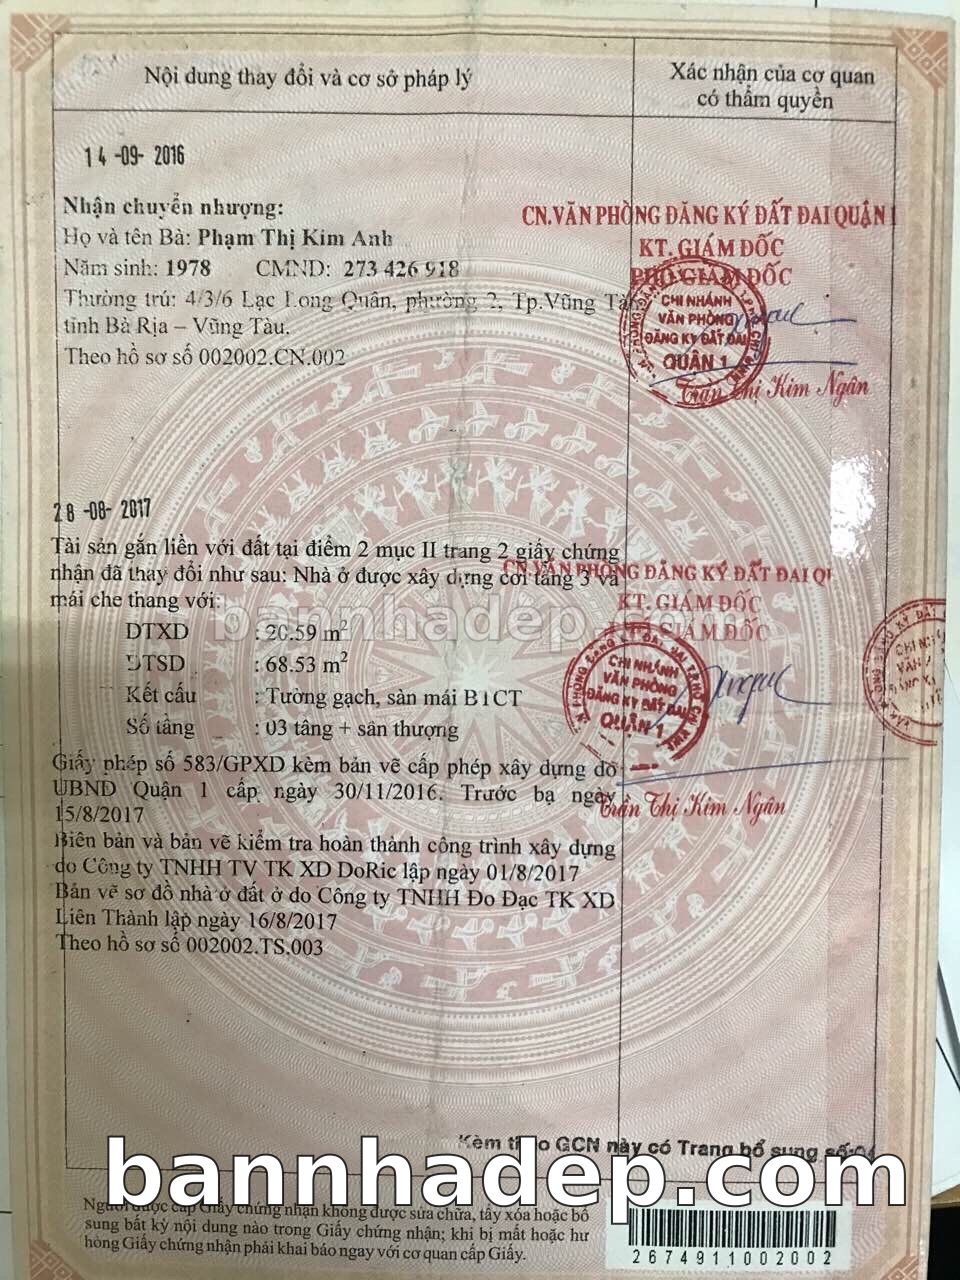 Nội dung thay đổi và cơ sở pháp lý
Xác nhận của cơ quan
có thẩm quyền
14-09-2016
Nhận chuyển nhượng:
Họ và tên Bà: Phạm Thị Kim Anh
Năm sinh: 1978 CMND: 273 426 918
Thường trú: 4/3/6 Lạc Long Quân, phường 2, Tp.Vũng Tàu,
tỉnh Bà Rịa – Vũng Tàu.
Theo hồ sơ số 002002.CN.002
CN.VĂN PHÒNG ĐĂNG KÝ ĐẤT ĐAI QUẬN 1
KT. GIÁM ĐỐC
PHÓ GIÁM ĐỐC
CHI NHÁNH
VĂN PHÒNG
ĐĂNG KÝ ĐẤT ĐAI
QUẬN 1
Trần Thị Kim Ngân
28-08-2017
Tài sản gắn liền với đất tại điểm 2 mục II trang 2 giấy chứng
nhận đã thay đổi như sau: Nhà ở được xây dựng cơi tầng 3 và
mái che thang với:
DTXD : 20.59 m²
DTSD : 68.53 m²
Kết cấu : Tường gạch, sàn mái BTCT
Số tầng : 03 tầng + sân thượng
Giấy phép số 583/GPXD kèm bản vẽ cấp phép xây dựng do
UBND Quận 1 cấp ngày 30/11/2016. Trước bạ ngày
15/8/2017
Biên bản và bản vẽ kiểm tra hoàn thành công trình xây dựng
do Công ty TNHH TV TK XD DoRic lập ngày 01/8/2017
Bản vẽ sơ đồ nhà ở đất ở do Công ty TNHH Đo Đạc TK XD
Liên Thành lập ngày 16/8/2017
Theo hồ sơ số 002002.TS.003
CN.VĂN PHÒNG ĐĂNG KÝ ĐẤT ĐAI QU
KT. GIÁM ĐỐC
PHÓ GIÁM ĐỐC
CHI NHÁNH
VĂN PHÒNG
ĐĂNG KÝ ĐẤT ĐAI
QUẬN 1
Trần Thị Kim Ngân
bannhadep.com
Kèm theo GCN này có Trang bổ sung số:01
bannhadep.com
Người được cấp Giấy chứng nhận không được sửa chữa, tẩy xóa hoặc bổ
sung bất kỳ nội dung nào trong Giấy chứng nhận; khi bị mất hoặc hư
hỏng Giấy chứng nhận phải khai báo ngay với cơ quan cấp Giấy.
2674911002002